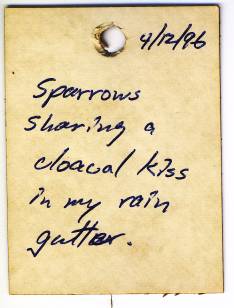 4/12/96
Sparrows
sharing a
cloacal kiss
in my rain
gutter.